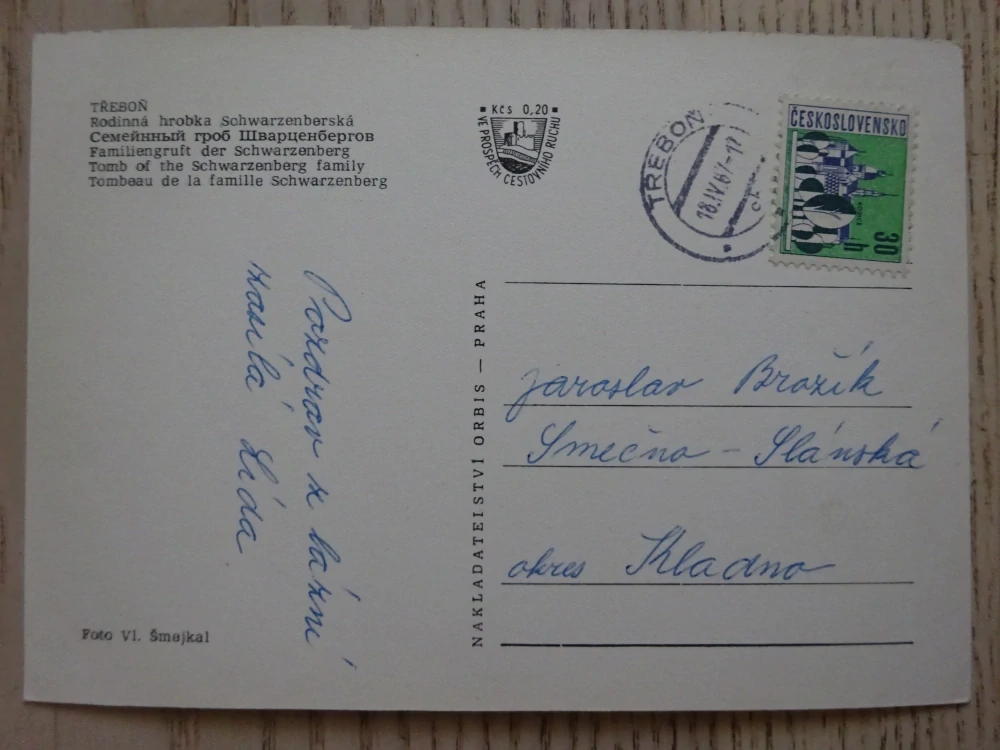 TŘEBOŇ
Rodinná hrobka Schwarzenberská
Семейнный гроб Шварценбергов
Familiengruft der Schwarzenberg
Tomb of the Schwarzenberg family
Tombeau de la famille Schwarzenberg
Kčs 0,20
VE PROSPĚCH CESTOVNÍHO RUCHU
TŘEBOŇ
18.IV.67-17
ČESKOSLOVENSKO
30 h
Pozdrav z lázní
zasílá Lída
NAKLADATELSTVÍ ORBIS — PRAHA
Jaroslav Brožík
Smečno - Slánská
okres Kladno
Foto Vl. Šmejkal